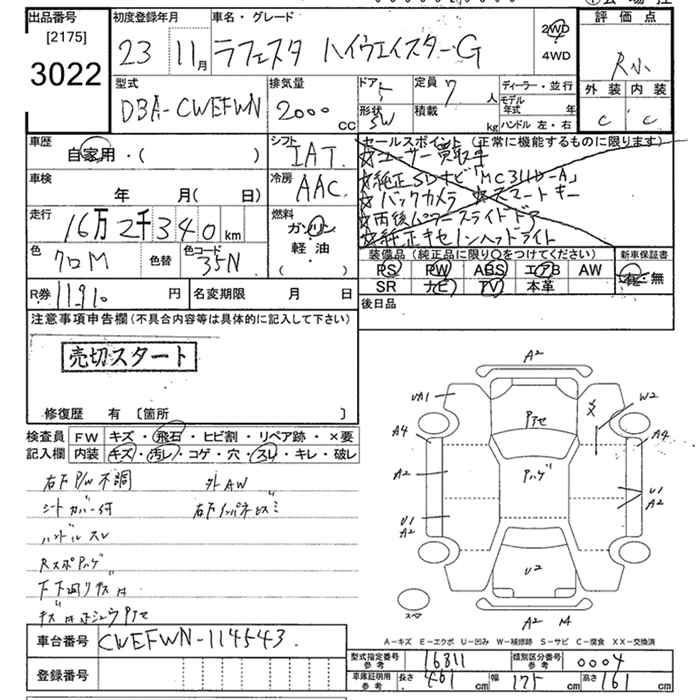 出品番号
[2175]
3022
初度登録年月
23 11月
車名・グレード
ラフェスタ ハイウェイスターG
2WD
4WD
評価点
R小
外装 内装
C C
型式
DBA-CWEFWN
排気量
2000 cc
ドア
5
形状
SW
定員
7 人
積載
kg
ディーラー・並行
モデル年式 年
ハンドル 左・右
車歴
自家用・( )
車検
年 月( 日)
走行
16万2千340 km
色
クロM
色替
色コード
35N
シフト
IAT
冷房
AAC
燃料
ガソリン
軽・油
( )
セールスポイント (正常に機能するものに限ります)
☆ユーザー買取車
☆純正SDナビ「MC311D-A」
☆バックカメラ ☆スマートキー
☆両後パワースライドドア
☆純正キセノンヘッドライト
装備品 (純正品に限り○をつけてください)
新車保証書
PS PW ABS エアB AW
SR ナビ TV 本革
有・無
後日品
R券 11,910 円
名変期限 月 日
注意事項申告欄(不具合内容等は具体的に記入して下さい)
売切スタート
修復歴 有 [箇所 ]
検査員
記入欄
FW キズ・飛石・ヒビ割・リペア跡・×要
内装 キズ・汚レ・コゲ・穴・スレ・キレ・破レ
右下P/W不調 外AW
シートカバー付
ハンドルスレ
RスポPハゲ
下下回りサビ
A2
UA1
A4
A2
U1
A2
Pアセ
Pハゲ
U2
W2
A4
U1
A2
A2 M
スペア
A-キズ E-エクボ U-凹み W-補修跡 S-サビ C-腐食 XX-交換済
車台番号
CWEFWN-114543
登録番号
型式指定番号
参考
16811
類別区分番号
参考
0004
車庫証明用
参考
長さ 461 cm 幅 175 cm 高さ 161 cm